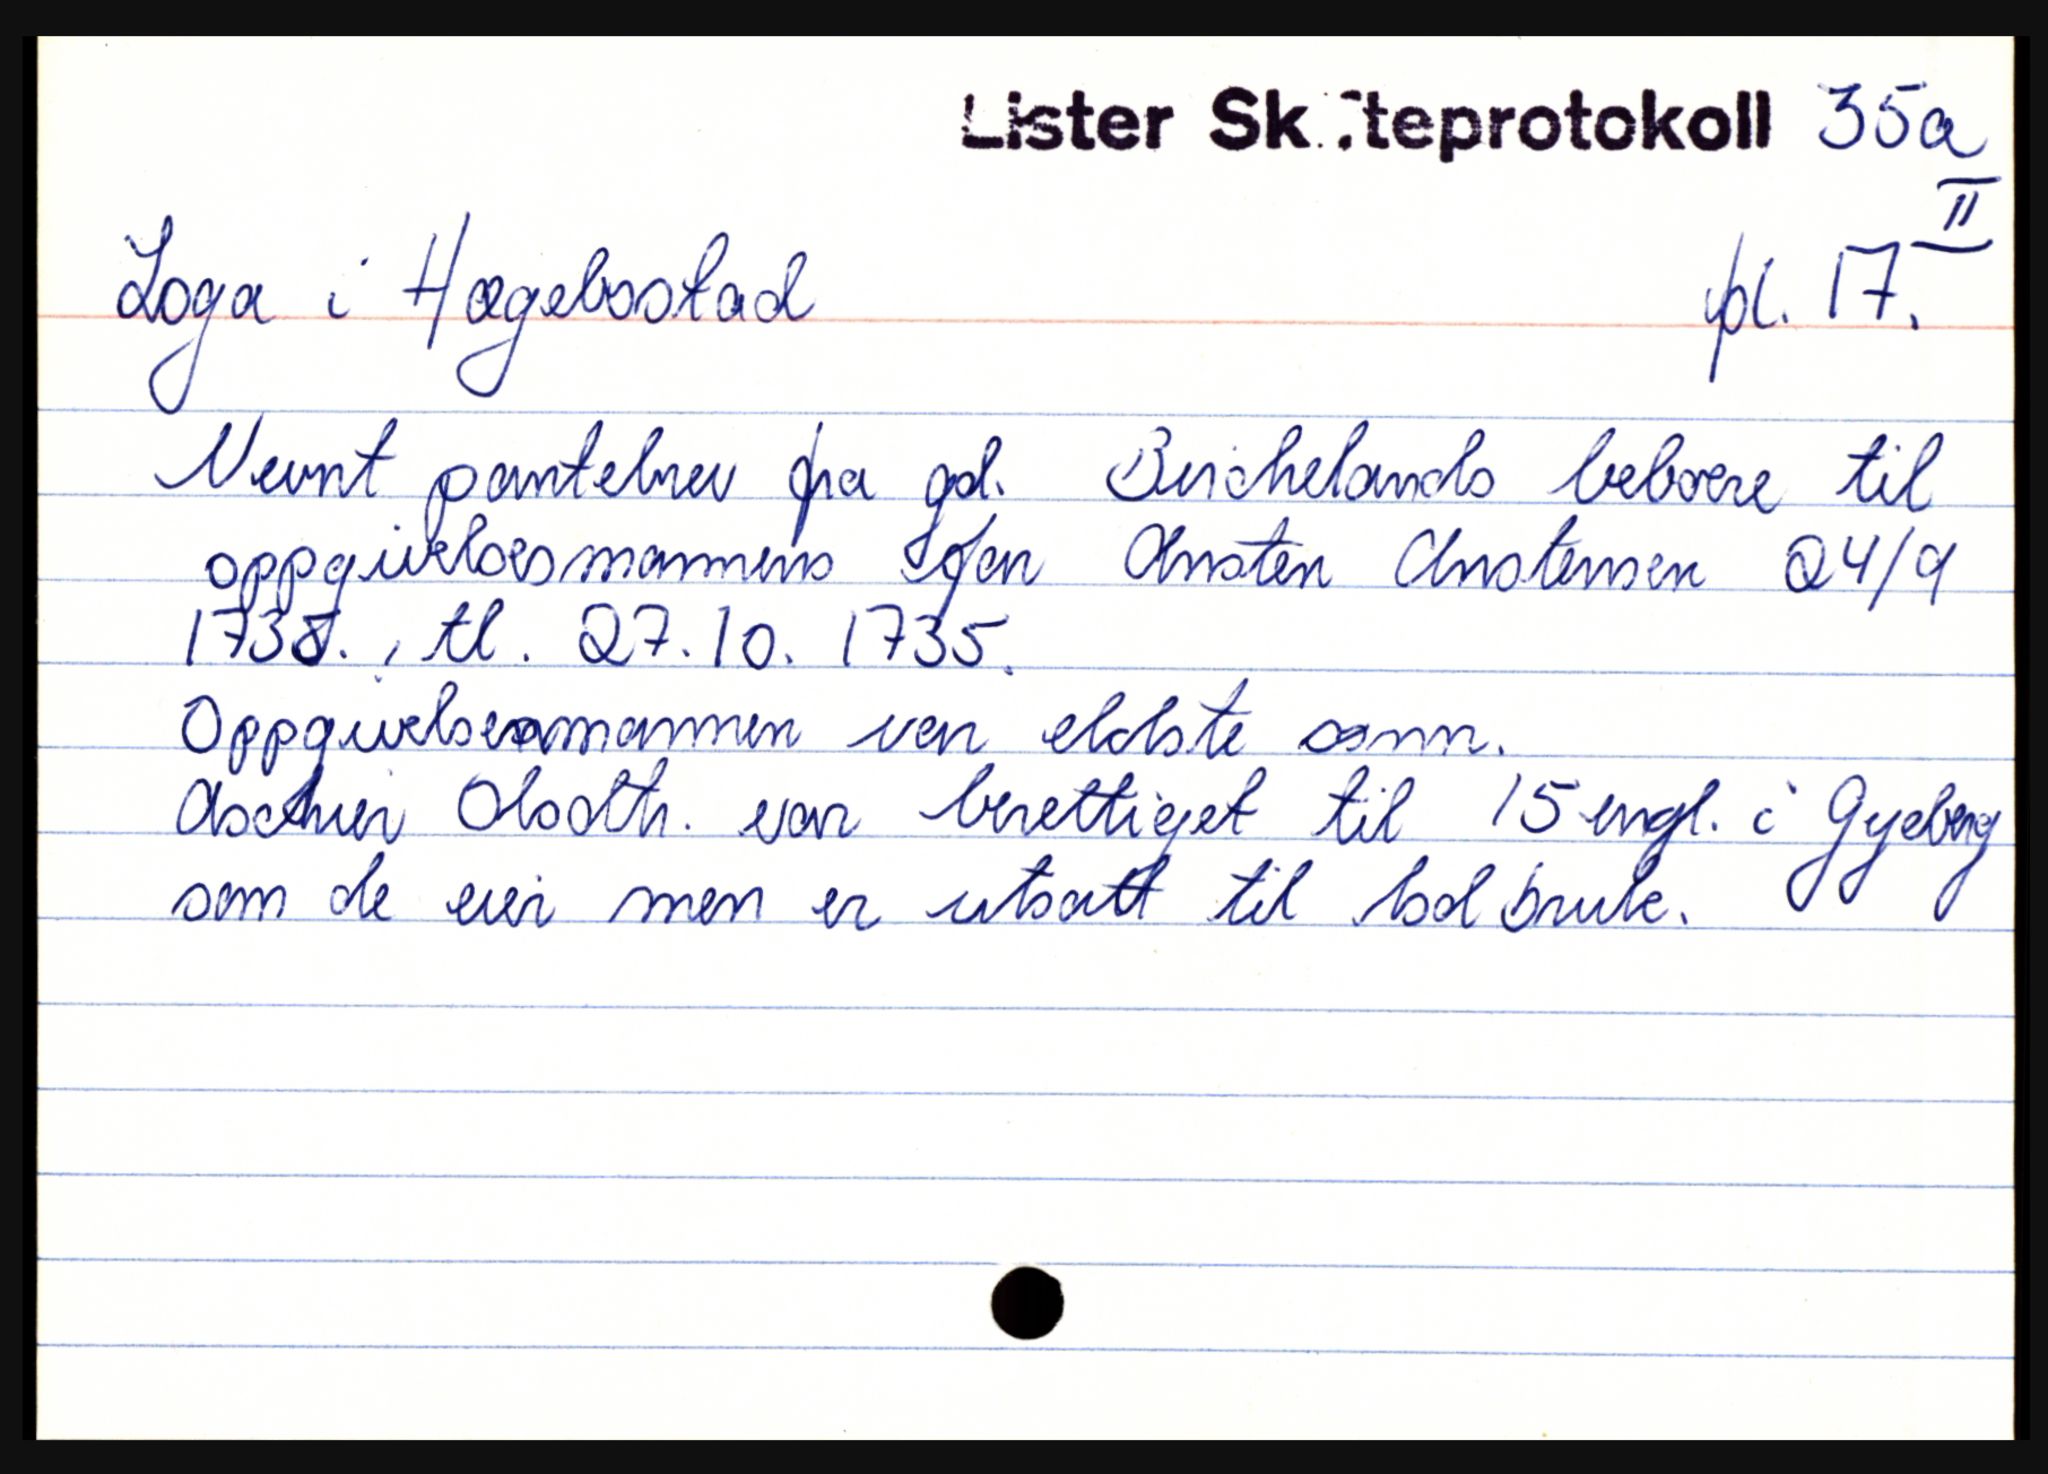 Lister Sk teprotokoll 35a
II
Loga i Hægebostad pl. 17.
Nevnt pantebrev fra gd. Birchelands beboere til
oppgivelsesmannens far Ansten Anstensen 24/9
1735. , tl. 27.10. 1735.
Oppgivelsesmannen var eldste sønn.
Olsdtr. var berettiget til 15 engl. i Gyeberg
som de eier men er utsatt til bol bruk.